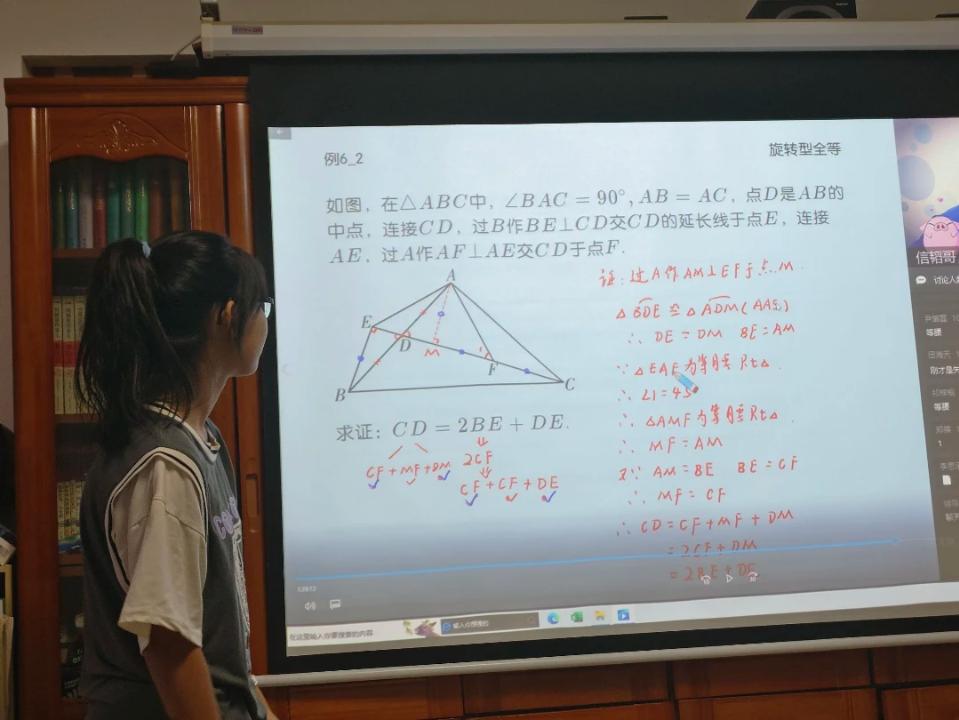 例6_2
旋转型全等
如图，在△ABC中，∠BAC = 90°, AB = AC，点D是AB的
中点，连接CD，过B作BE⊥CD交CD的延长线于点E，连接
AE，过A作AF⊥AE交CD于点F.
A
E
D
M
F
B
C
1
求证：CD = 2BE + DE.
CF + MF + DM
2CF
CF + CF + DE
证：过A作AM⊥EF于点M.
△BDE ≌ △ADM (AAS)
∴ DE = DM BE = AM
∵ △EAF为等腰Rt△.
∴ ∠1 = 45°
∴ △AMF为等腰Rt△.
∴ MF = AM
又∵ AM = BE BE = CF
∴ MF = CF
∴ CD = CF + MF + DM
= 2CF + DM
= 2BE + DE
信韬哥
讨论
等腰
等腰
1
在这里输入你要搜索的内容